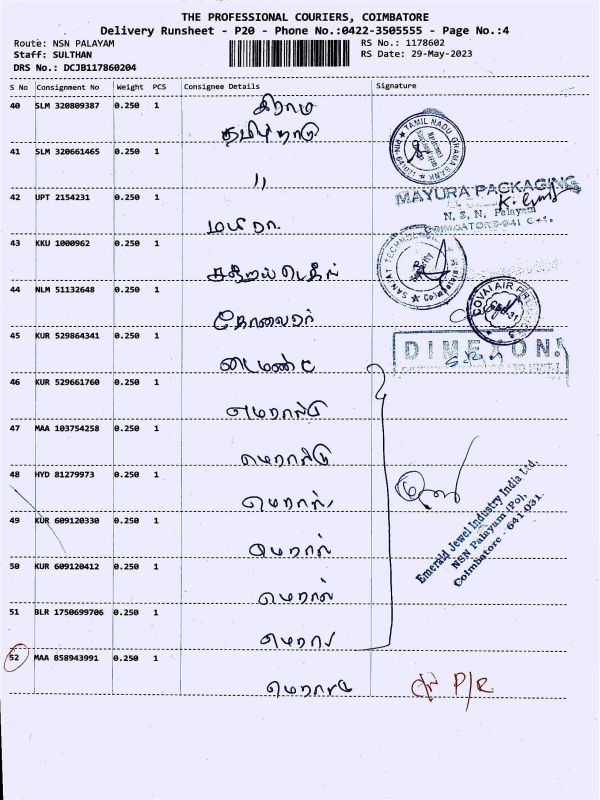 THE PROFESSIONAL COURIERS, COIMBATORE
Delivery Runsheet - P20 - Phone No.:0422-3505555 - Page No.:4
Route: NSN PALAYAM
Staff: SULTHAN
DRS No.: DCJB117860204
RS No.: 1178602
RS Date: 29-May-2023
S No Consignment No Weight PCS Consignee Details Signature
40 SLM 320809387 0.250 1 கிராம
தமிழ்நாடு
TAMIL NADU GRAMA BANK
41 SLM 320661465 0.250 1
"
MAYURA PACKAGING
N. S. N. Palayam
42 UPT 2154231 0.250 1
மயிரா
43 KKU 1000962 0.250 1
44 NLM 51132648 0.250 1
COVAI AIR
45 KUR 529864341 0.250 1
DIMEXON
டைமண்ட்
46 KUR 529661760 0.250 1
எமரால்டு
47 MAA 103754258 0.250 1
எமரால்டு
48 HYD 81279973 0.250 1
எமரால்
6
Emerald Jewel Industry India Ltd.,
NSN Palayam (Po),
Coimbatore - 641 031.
49 KUR 609120330 0.250 1
எமரால்
50 KUR 609120412 0.250 1
எமரால்
51 BLR 1750699706 0.250 1
எமரால்
52 MAA 858943991 0.250 1
எமரால்டு
P/R